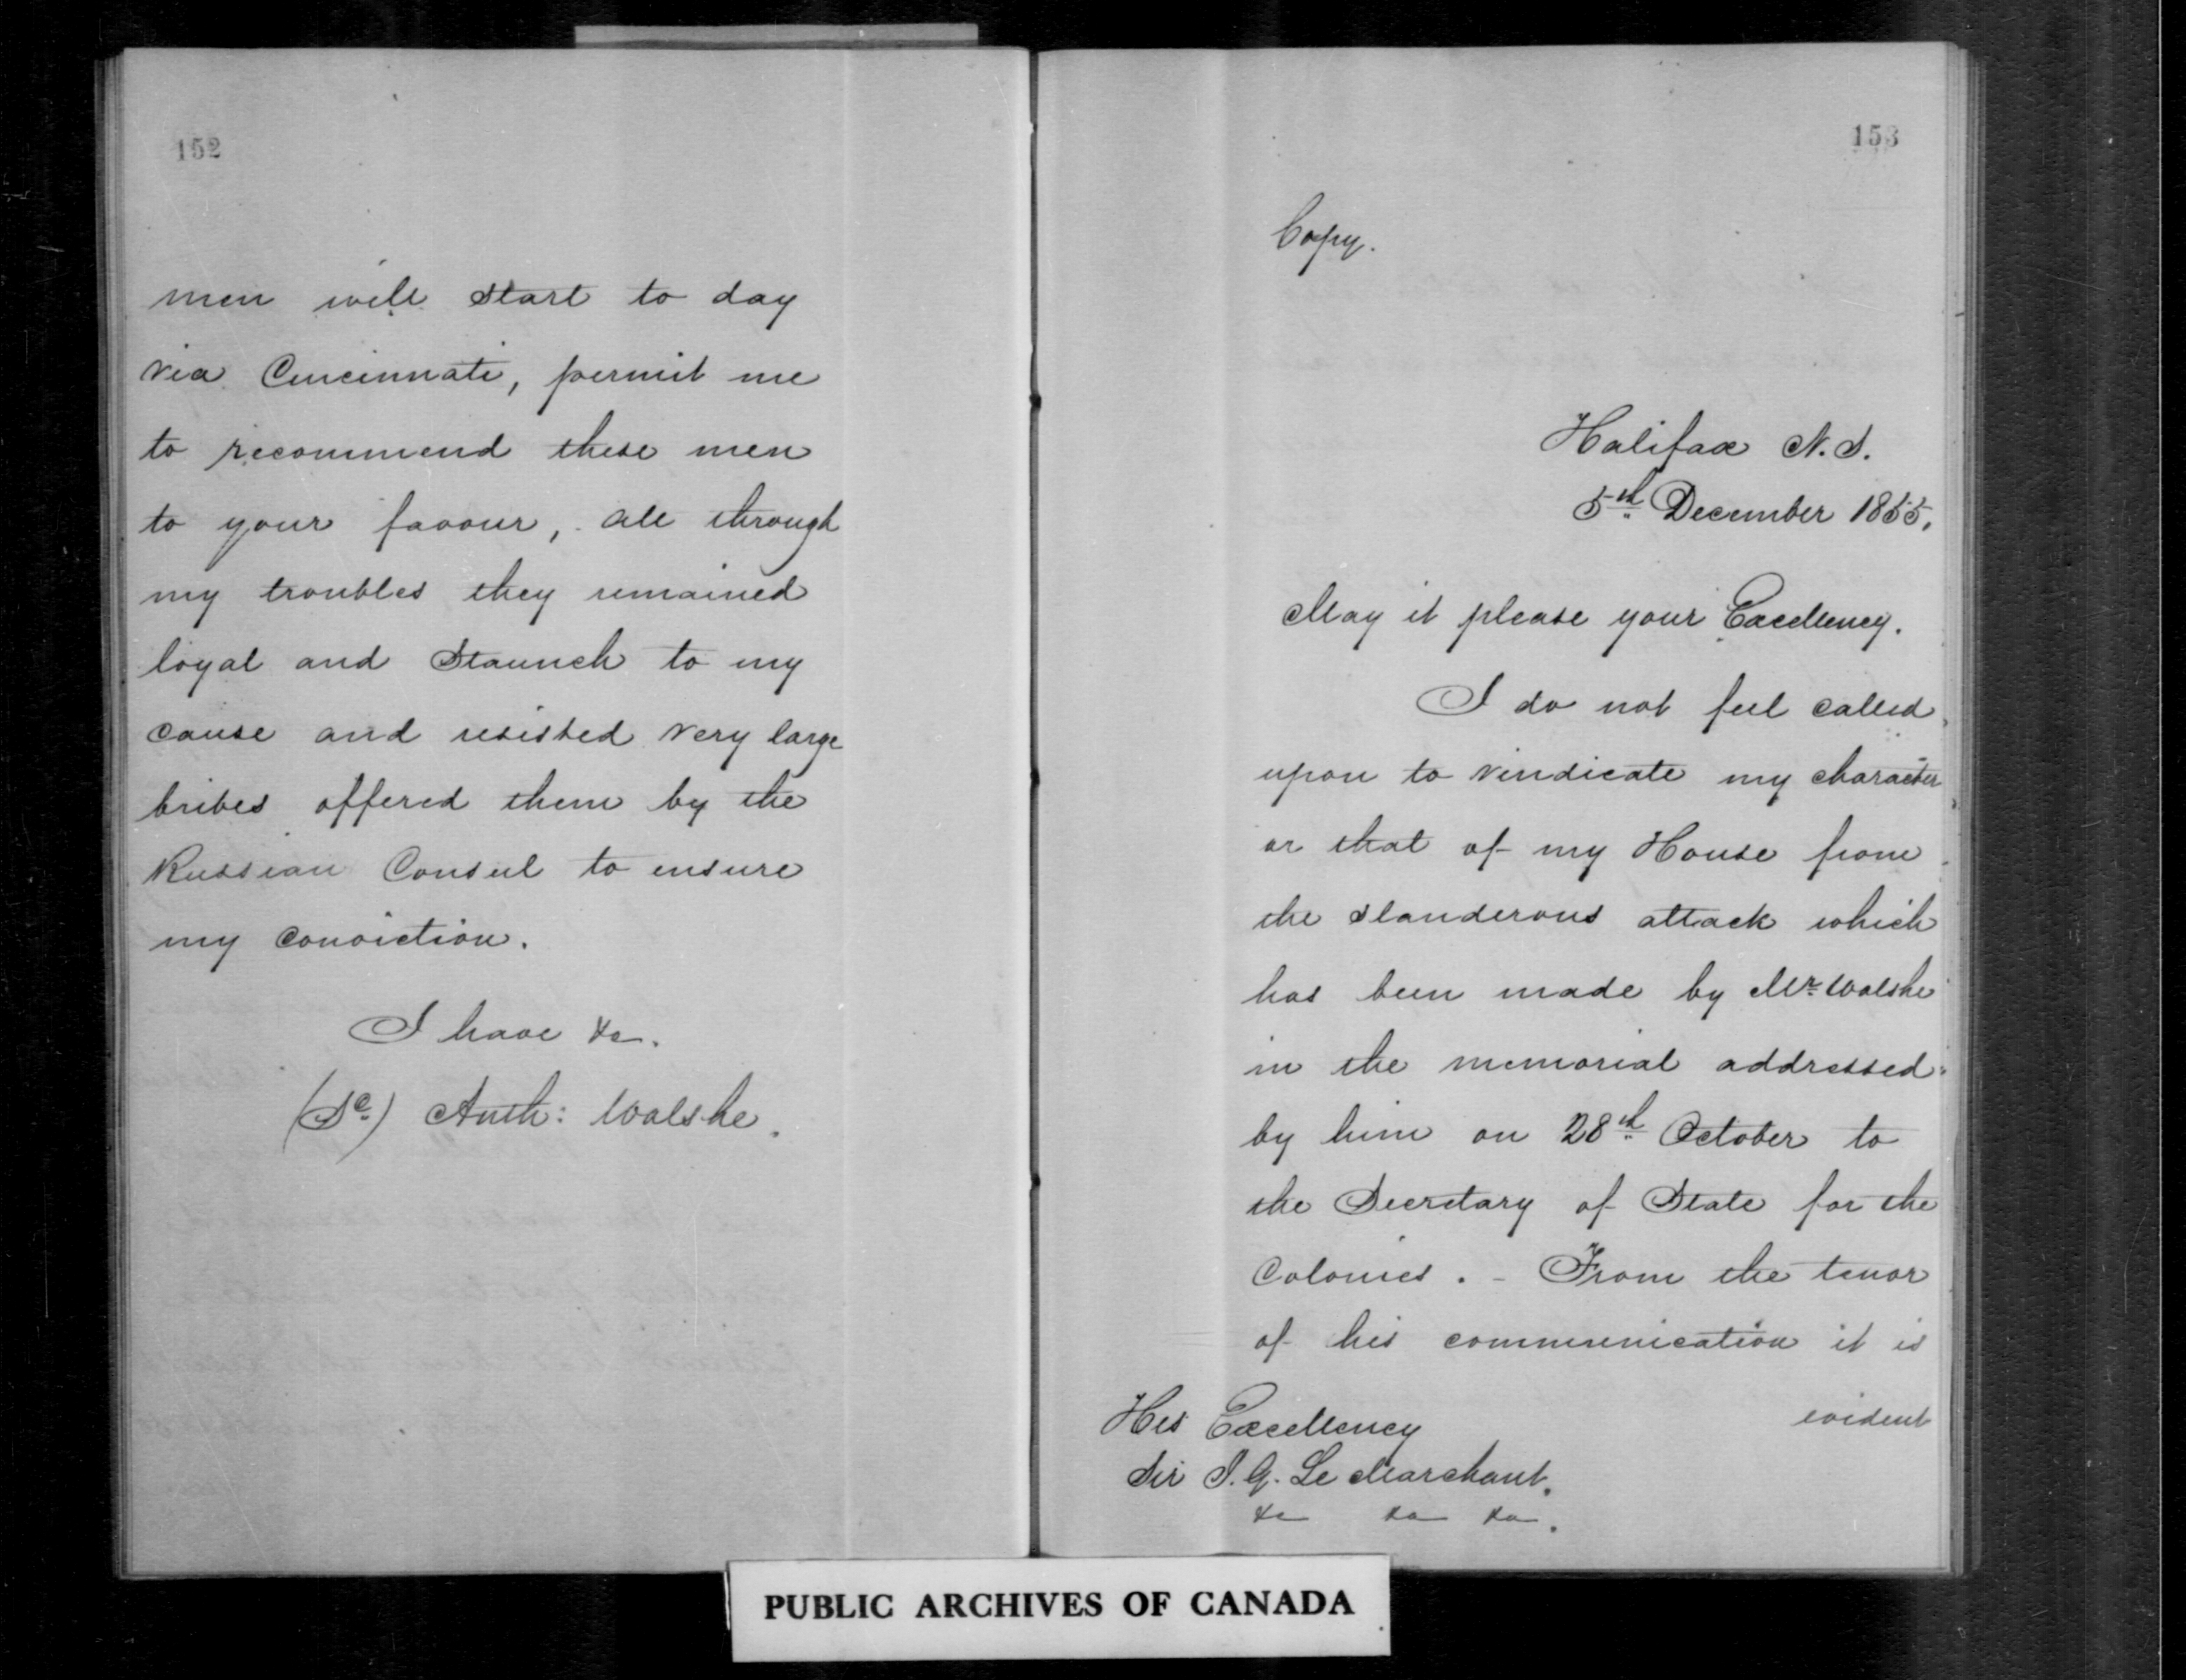 152
men will start to day
via Cincinnati, permit me
to recommend these men
to your favour, - all through
my troubles they remained
loyal and staunch to my
cause and resisted very large
bribes offered them by the
Russian Consul to ensure
my conviction.
I have &c.
(Sd.) Anth: Walshe.
153
Copy.
Halifax N.S.
5th December 1855.
May it please your Excellency.
I do not feel called
upon to vindicate my character
or that of my House from
the slanderous attack which
has been made by Mr. Walshe
in the memorial addressed
by him on 28th October to
the Secretary of State for the
Colonies. - From the tenor
of his communication it is
evident
His Excellency
Sir J. G. Le Marchant.
&c &c &c.
PUBLIC ARCHIVES OF CANADA